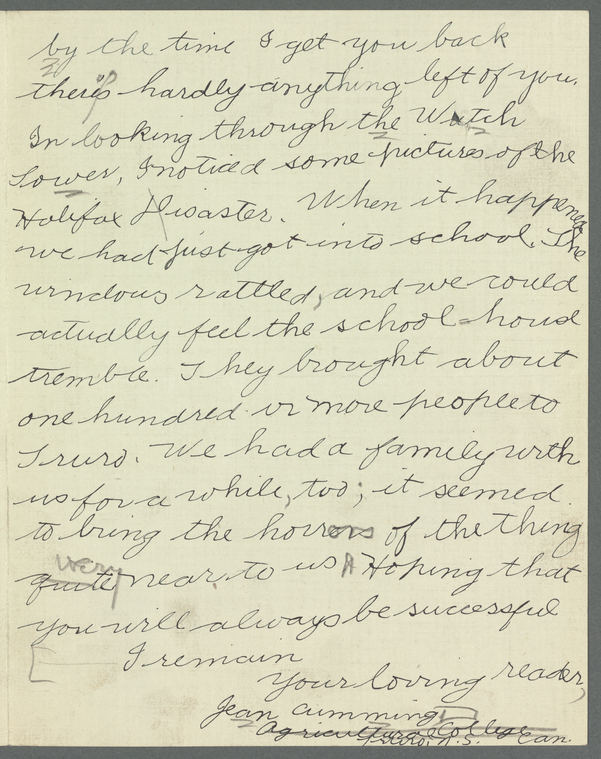 by the time I get you back
there's hardly anything left of you.
In looking through the Watch
Tower, I noticed some pictures of the
Halifax Disaster. When it happened
we had just got into school. The
windows rattled, and we could
actually feel the school-house
tremble. They brought about
one hundred or more people to
Truro. We had a family with
us for a while, too; it seemed
to bring the horrors of the thing
very
quite near to us Hoping that
you will always be successful
I remain
Your loving reader,
Jean Cumming
Agricultural College
Truro, N.S. Can.